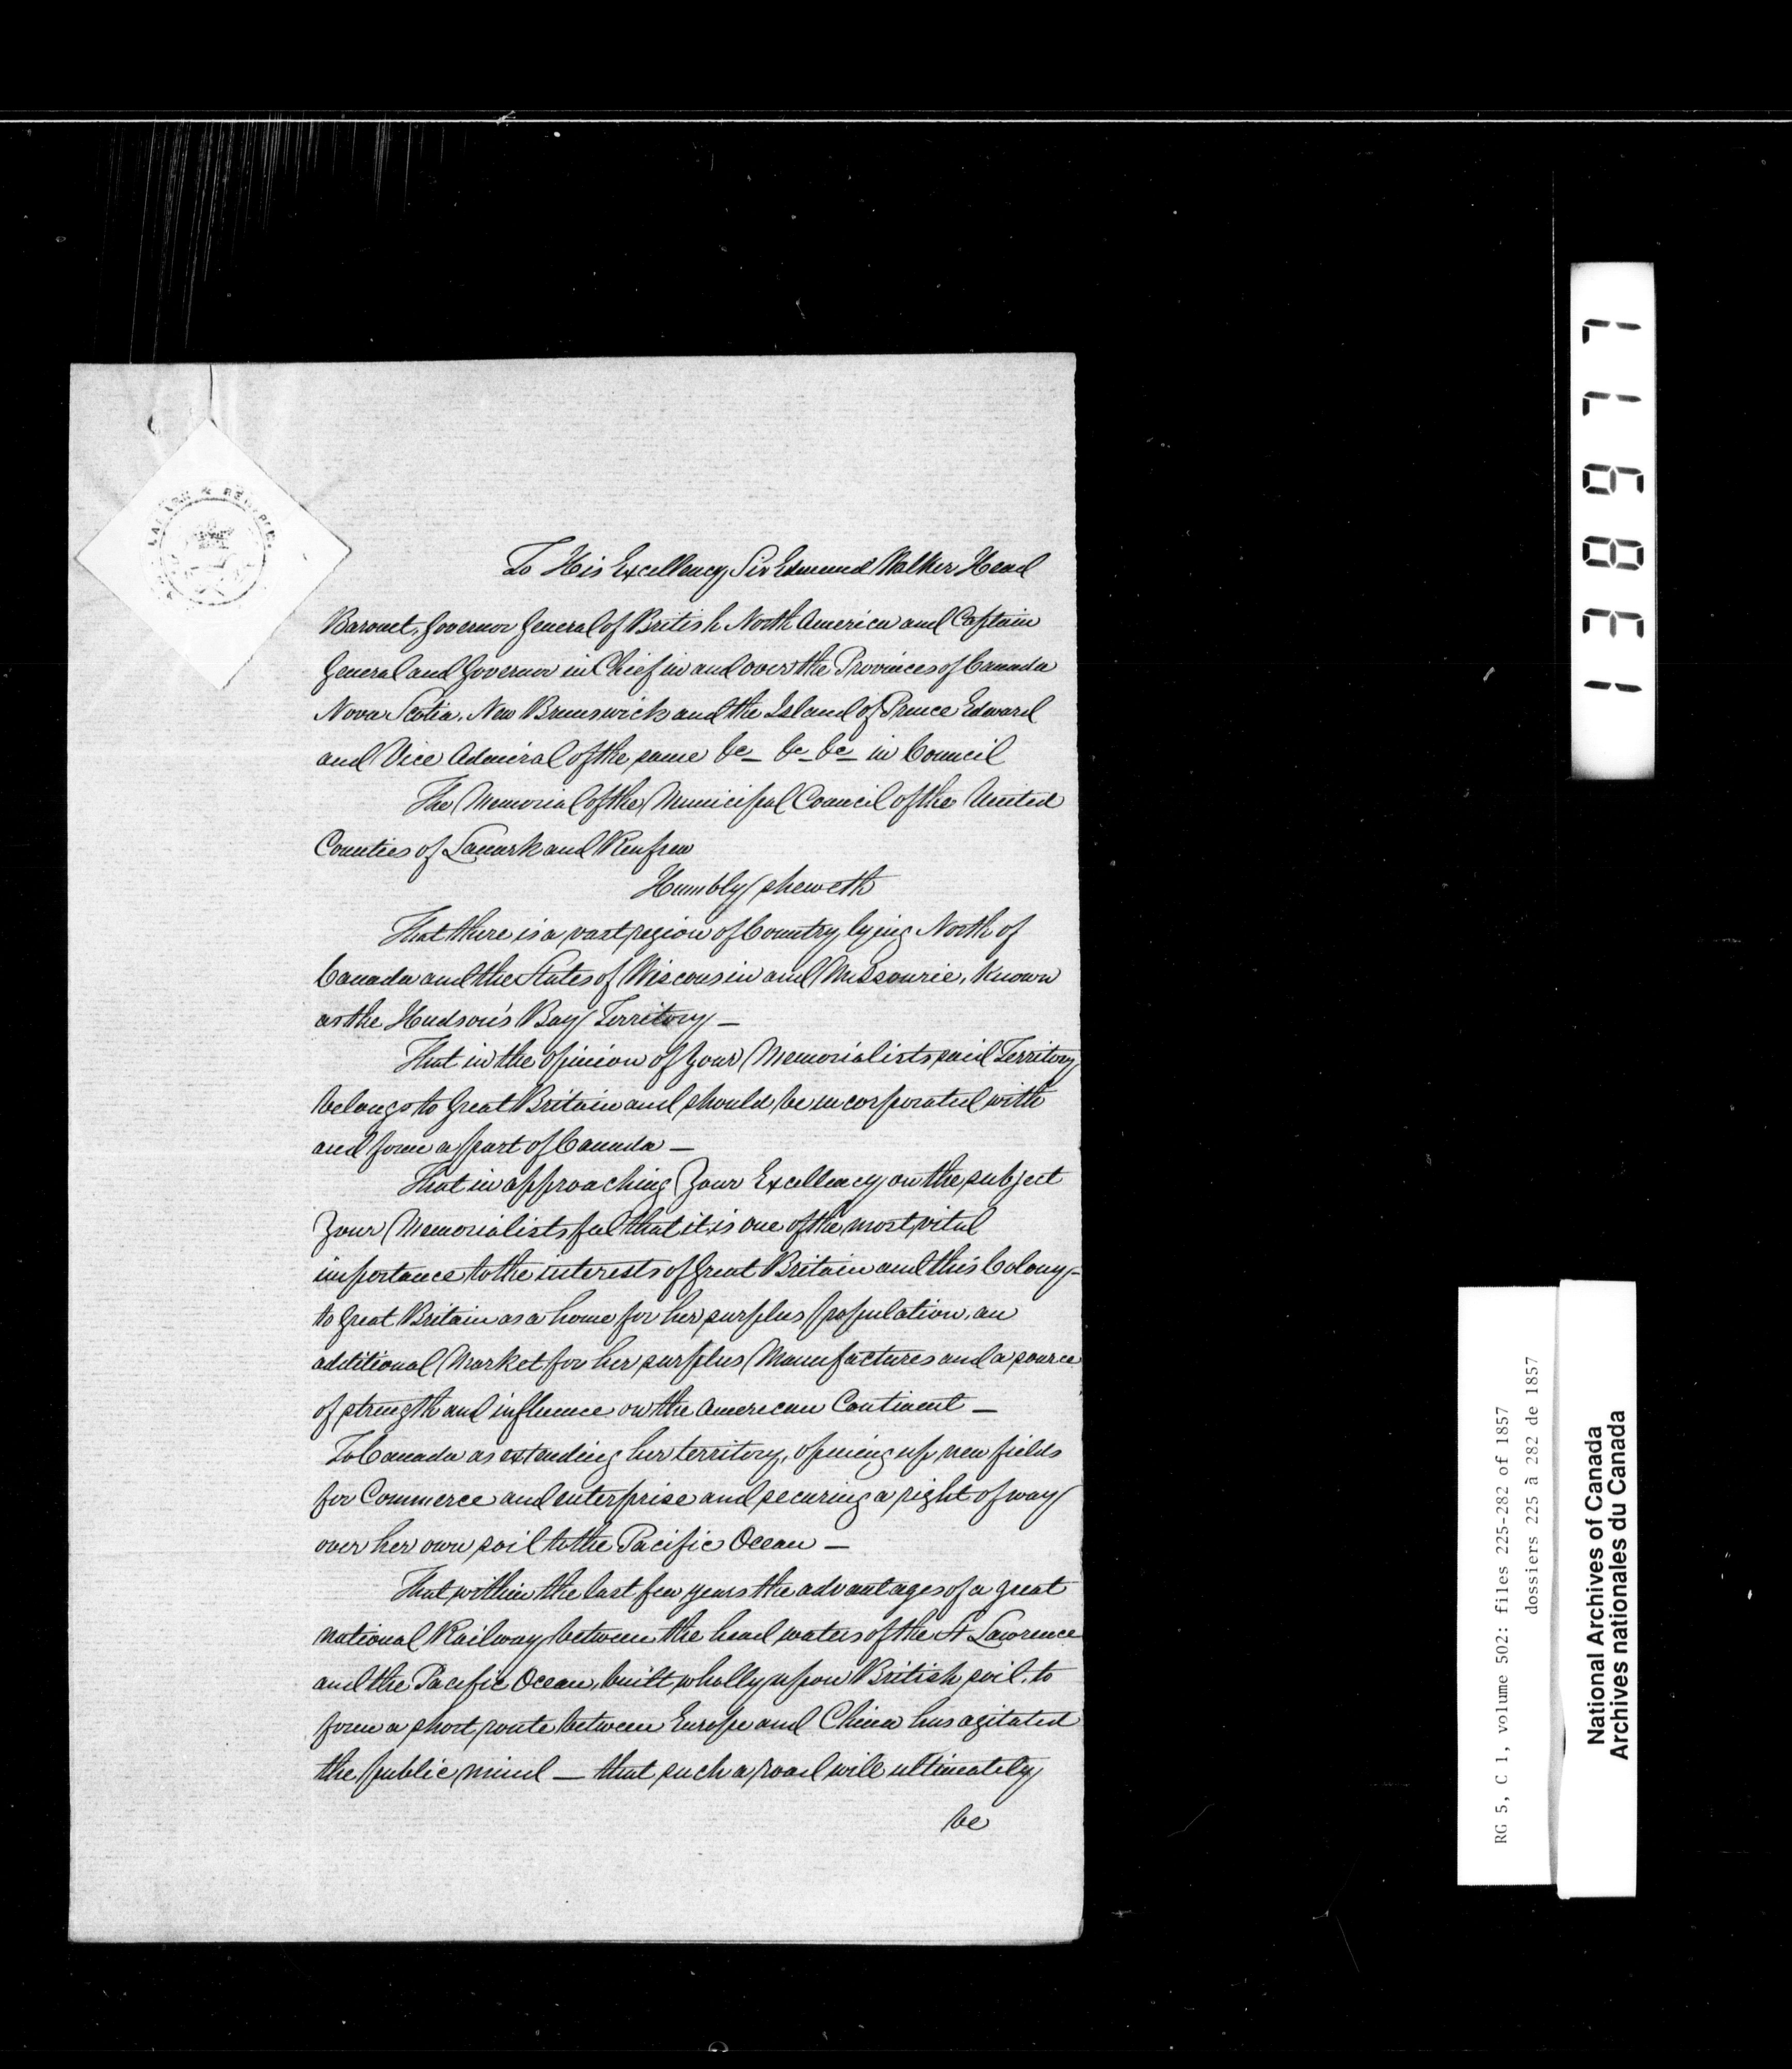 To His Excellency Sir Edmund Walker Head
Baronet, Governor General of British North America and Captain
General and Governor in Chief in and over the Provinces of Canada
Nova Scotia, New Brunswick and the Island of Prince Edward
and Vice Admiral of the same &c &c &c in Council
The Memorial of the Municipal Council of the United
Counties of Lanark and Renfrew
Humbly sheweth
That there is a vast region of Country, lying North of
Canada and the States of Wisconsin and Missourie, known
as the Hudson's Bay Territory —
That in the opinion of Your Memorialists said Territory
belongs to Great Britain and should be incorporated with
and form a part of Canada —
That in approaching Your Excellency on the subject
Your Memorialists feel that it is one of the most vital
importance to the interests of Great Britain and this Colony –
to Great Britain as a home for her surplus population, an
additional Market for her surplus Manufactures and a source
of strength and influence on the American Continent —
To Canada as extending her territory, opening up new fields
for Commerce and enterprise and securing a right of way
over her own soil to the Pacific Ocean —
That within the last few years the advantages of a great
national Railway between the head waters of the St Lawrence
and the Pacific Ocean, built wholly upon British soil, to
form a short route between Europe and China has agitated
the public mind — that such a road will ultimately
be
LANARK & RENFREW
138977
RG 5, C 1, volume 502: files 225-282 of 1857
dossiers 225 à 282 de 1857
National Archives of Canada
Archives nationales du Canada